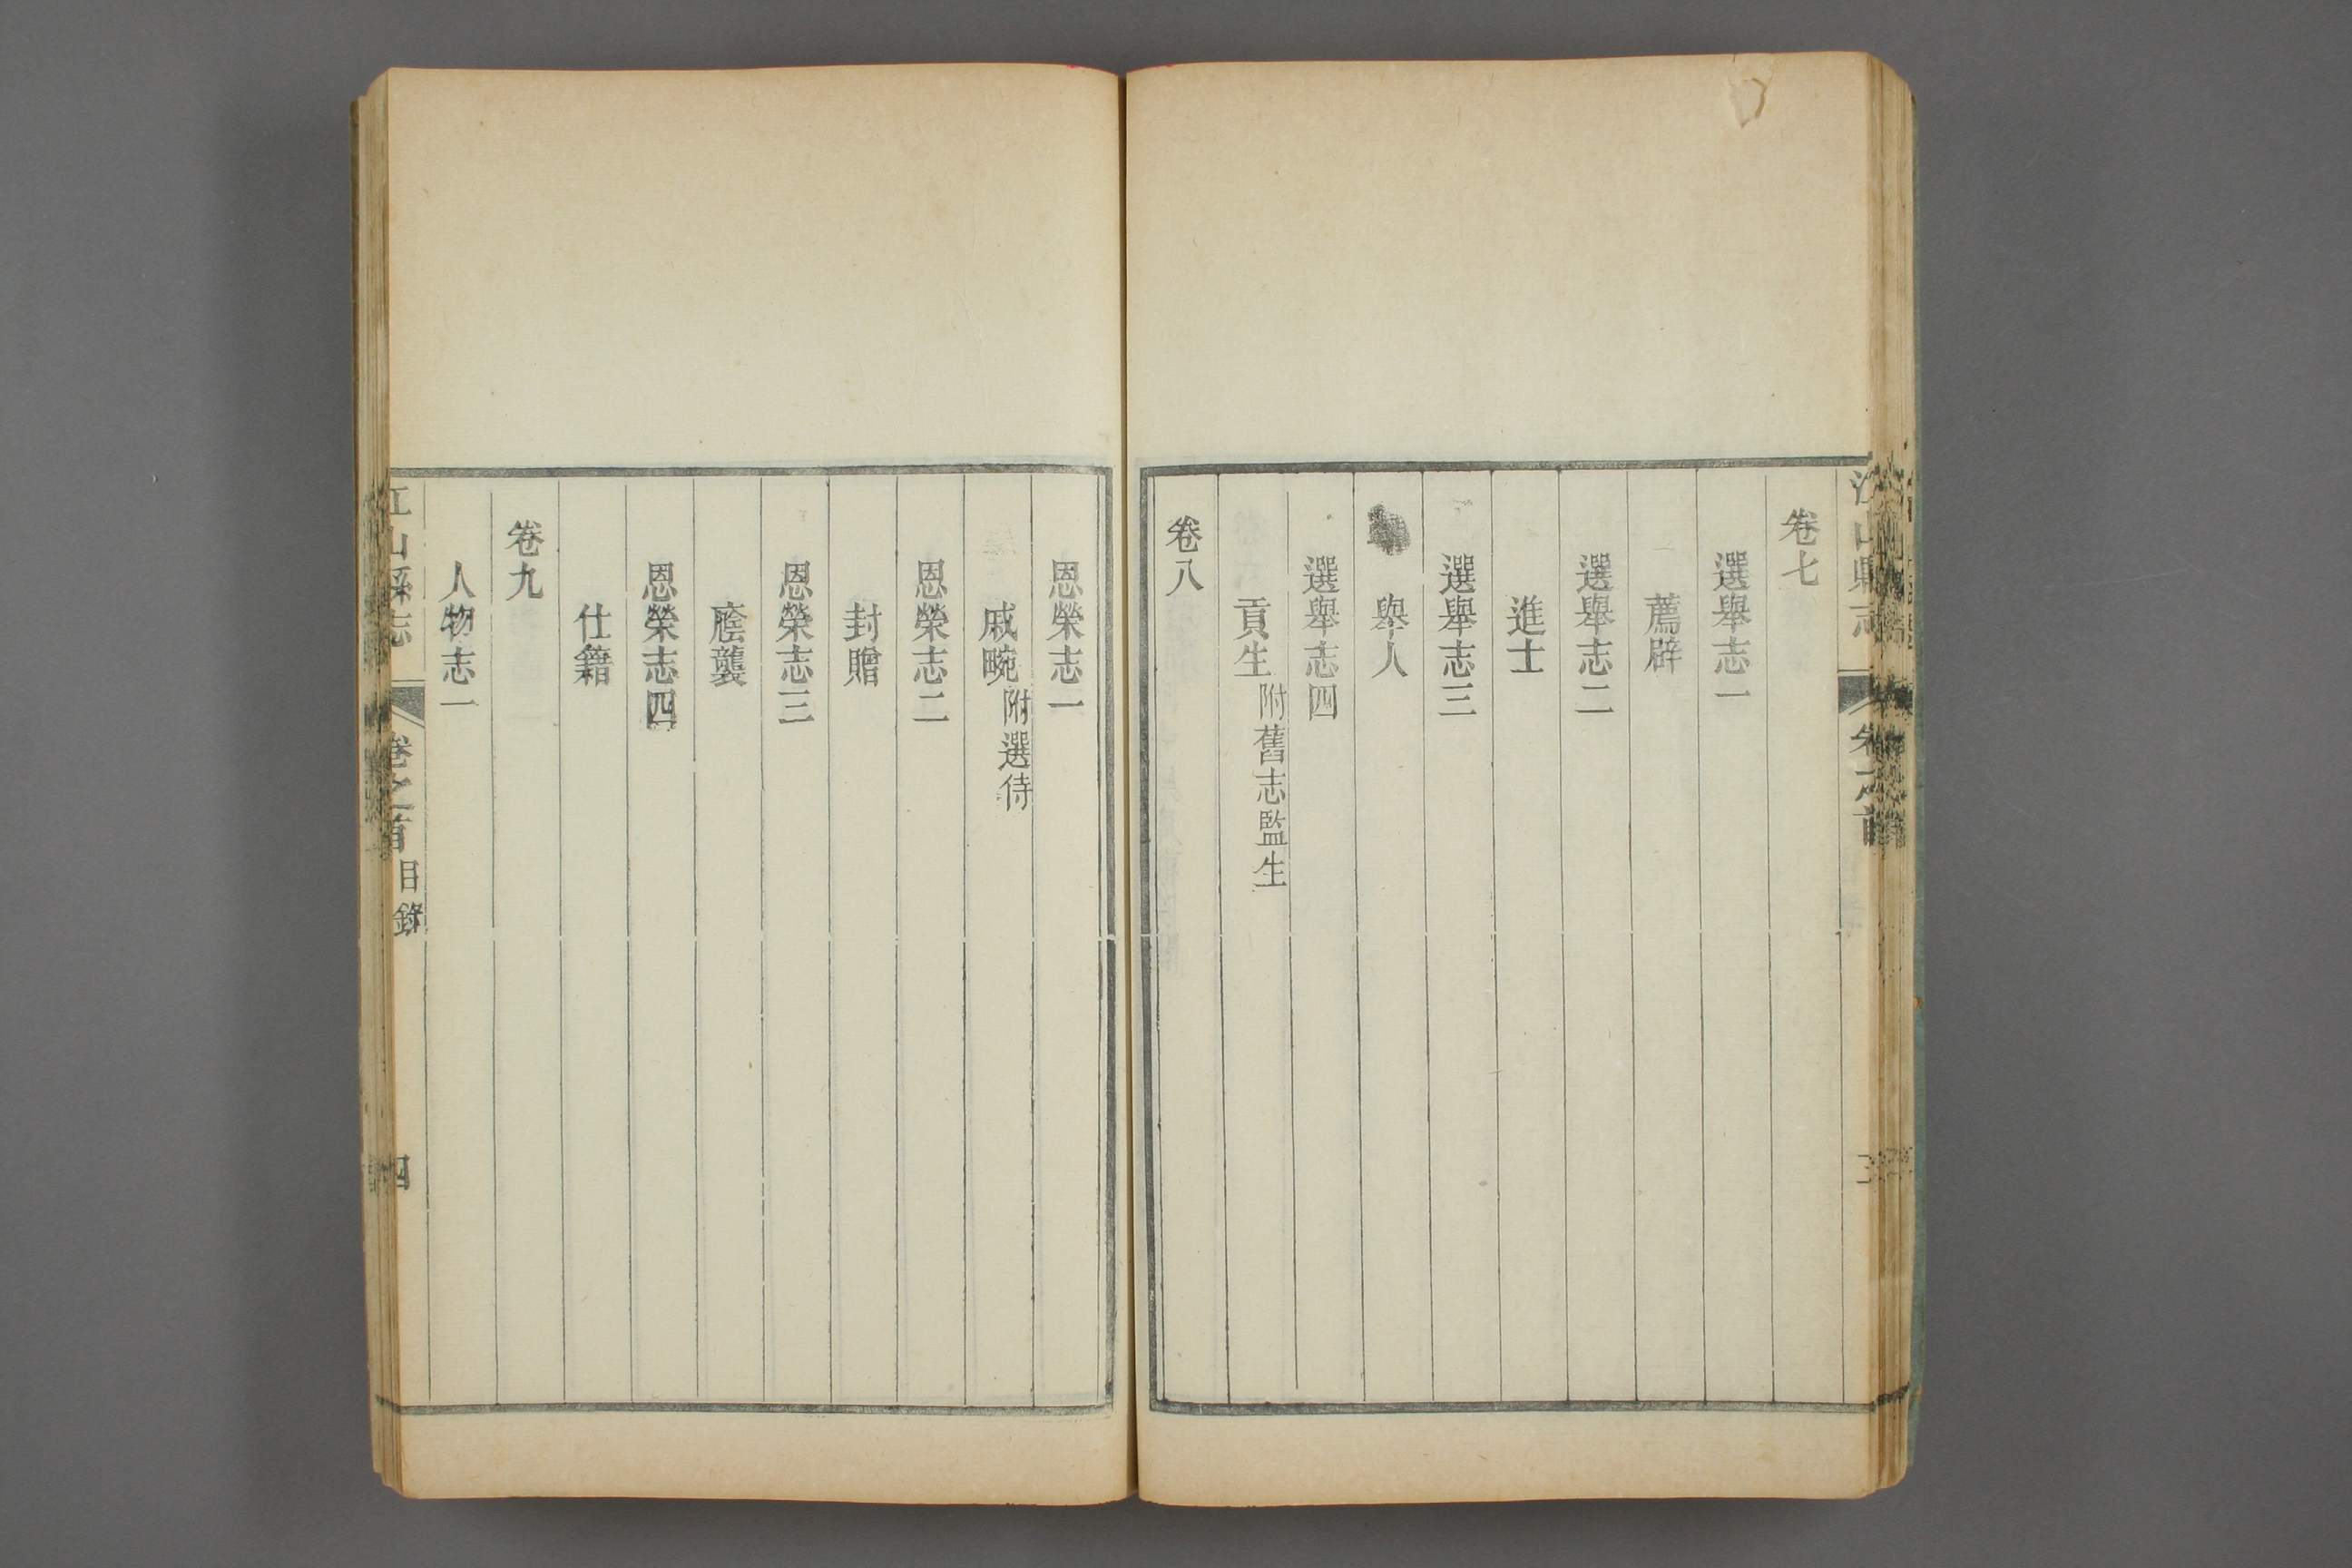 江山縣志 卷之首 三
卷七
選舉志一
薦辟
選舉志二
進士
選舉志三
舉人
選舉志四
貢生附舊志監生
卷八
恩榮志一
戚畹附選侍
恩榮志二
封贈
恩榮志三
廕襲
恩榮志四
仕籍
卷九
人物志一
江山縣志 卷之首 目錄 四